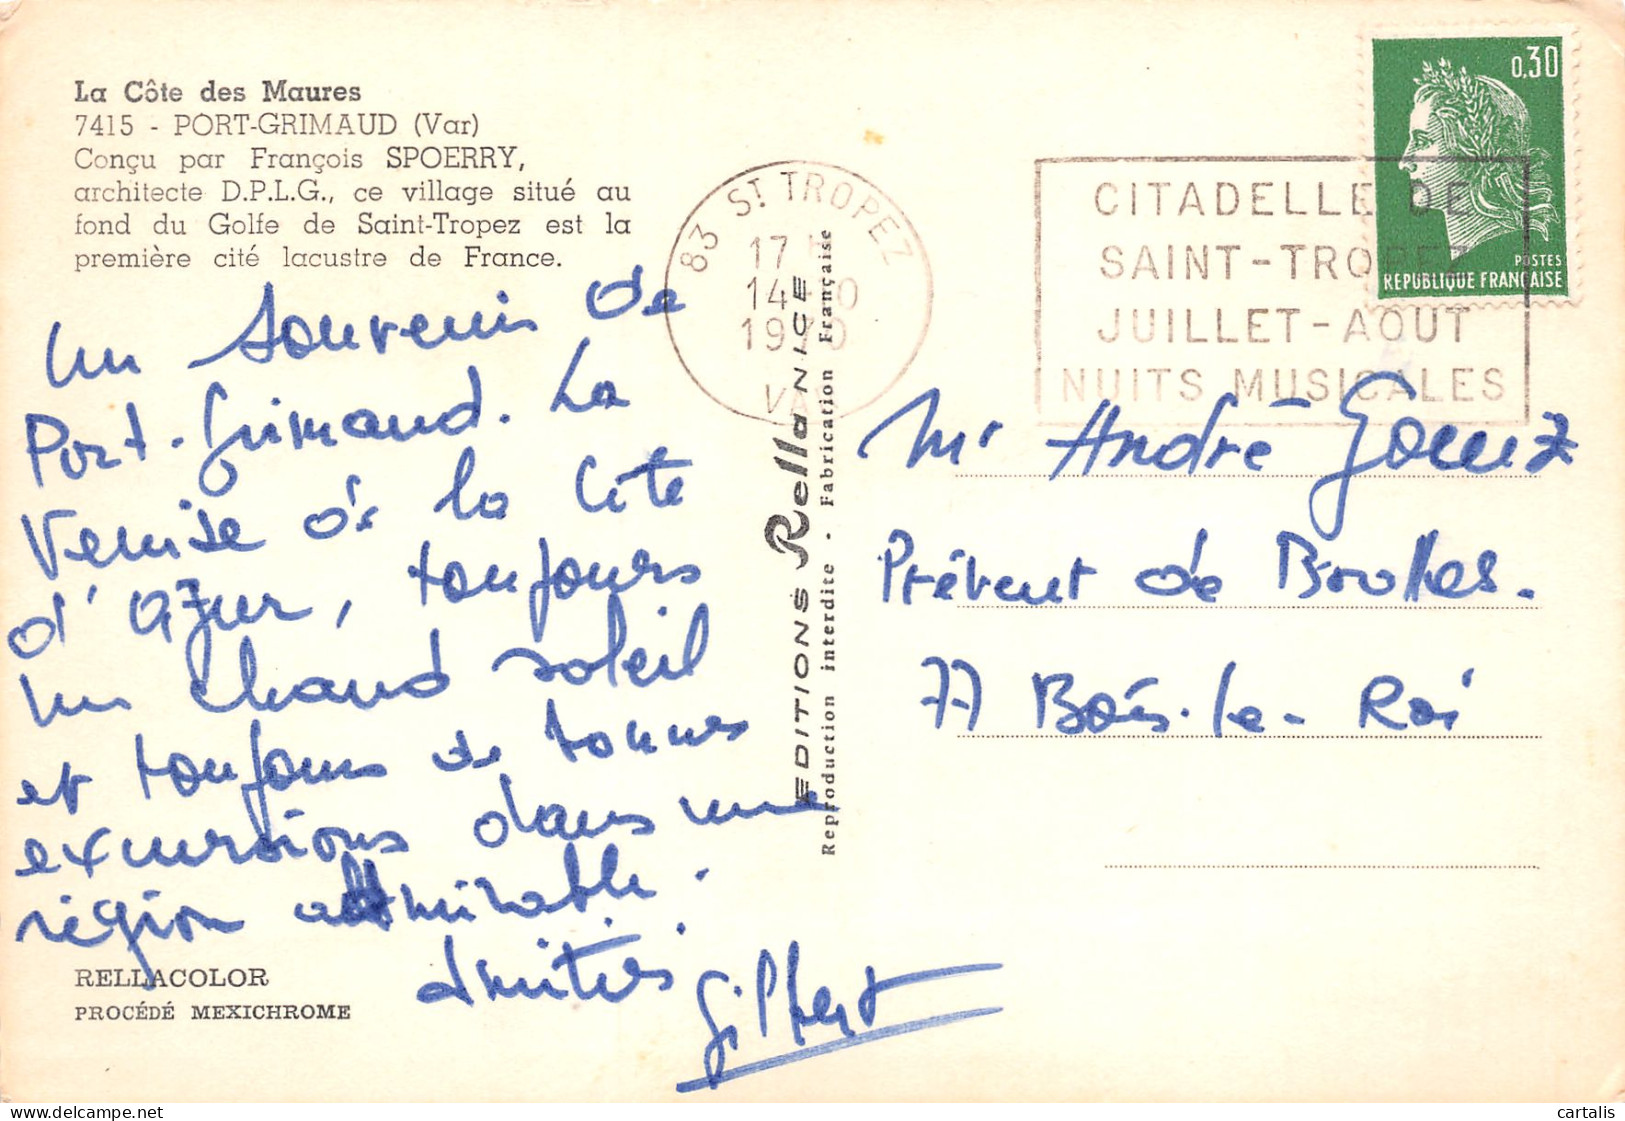 La Côte des Maures
7415 - PORT-GRIMAUD (Var)
Conçu par François SPOERRY,
architecte D.P.L.G., ce village situé au
fond du Golfe de Saint-Tropez est la
première cité lacustre de France.
un souvenir de
Port-Grimaud. La
Venise de la Côte
d'azur, toujours
un chaud soleil
et toujours de bonnes
excursions dans une
région admirable.
Amitiés.
Gilbert
RELLACOLOR
PROCÉDÉ MEXICHROME
83 ST TROPEZ
17 H
14-
1970
VAR
EDITIONS Rella NICE
Reproduction interdite - Fabrication Française
CITADELLE DE
SAINT-TROPEZ
JUILLET-AOUT
NUITS MUSICALES
0,30
POSTES
REPUBLIQUE FRANÇAISE
Mr André
de
77 Bois-le-Roi
delcampe.net
cartalis